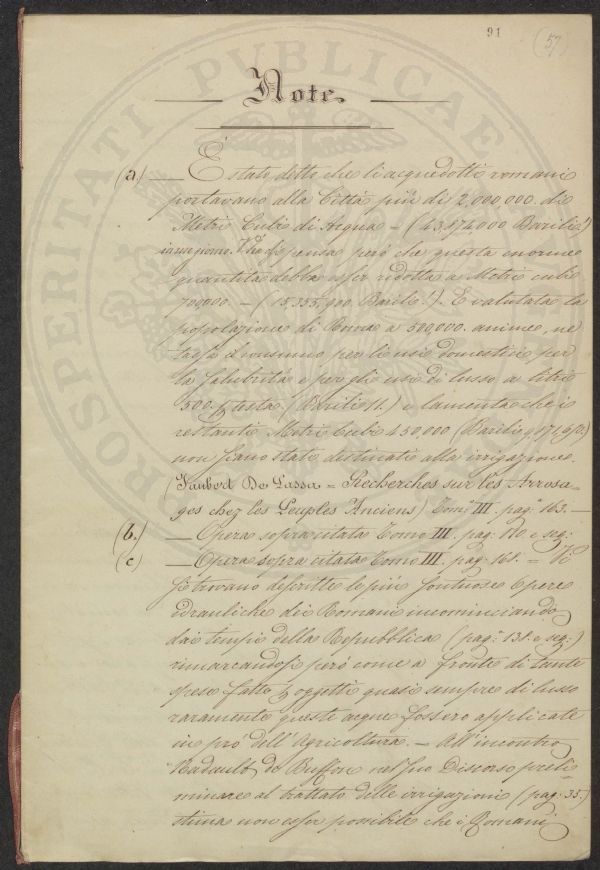 91
(57)
Note.
(a.) — È stato detto che li acquedotti romani
portavano alla Città più di 2,000,000. di
Metri Cubi di Acqua – (43,874,000 Barili)
in un giorno. V'ha chi pensa però che questa enorme
quantità debba esser ridotta a Metri cubi
700,000. – (15,355,900 Barili). E valutata la
popolazione di Roma a 500,000. anime, ne
tassa il consumo per li usi domestici per
la salubrità e per gli usi di lusso a litri
500. p testa (Barili 11.) e lamenta che i
restanti Metri Cubi 450,000 (Barili
non siano stati destinati alla irrigazione
(Jaubert De Passa = Recherches sur les Arrosa-
ges chez les Peuples Anciens) Tom. III. pag. 163. —
(b.) — Opera sopra citata Tomo III. pag. 110 e seg:
(c) — Opera sopra citata Tomo III. pag. 161. = Vi
si trovano descritte le più sontuose Opere
idrauliche dei Romani incominciando
dai tempi della Repubblica (pag. 131. e seg:)
rimarcandosi però come a fronte di tante
spese fatte p oggetti quasi sempre di lusso
raramente queste acque fossero applicate
in pro' dell'Agricoltura. – All'incontro
Nadault de Buffon nel suo Discorso preli=
minare al trattato delle irrigazioni (pag. 35.)
stima non esser possibile che i Romani
PROSPERITATI PVBLICAE